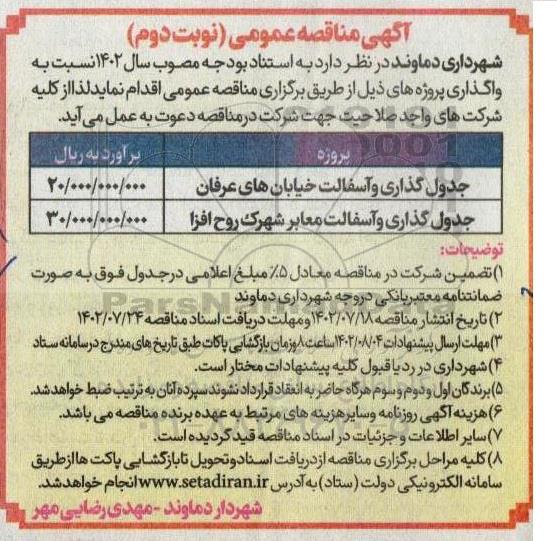 آگهی مناقصه عمومی (نوبت دوم)
شهرداری دماوند در نظر دارد به استناد بودجه مصوب سال ۱۴۰۲ نسبت به
واگذاری پروژه های ذیل از طریق برگزاری مناقصه عمومی اقدام نماید لذا از کلیه
شرکت های واجد صلاحیت جهت شرکت در مناقصه دعوت به عمل می آید.
پروژه برآورد به ریال
جدول گذاری و آسفالت خیابان های عرفان ۲۰/۰۰۰/۰۰۰/۰۰۰
جدول گذاری و آسفالت معابر شهرک روح افزا ۳۰/۰۰۰/۰۰۰/۰۰۰
توضیحات:
۱) تضمین شرکت در مناقصه معادل ۵٪ مبلغ اعلامی در جدول فوق به صورت
ضمانتنامه معتبر بانکی در وجه شهرداری دماوند
۲) تاریخ انتشار مناقصه ۱۴۰۲/۰۷/۱۸ و مهلت دریافت اسناد مناقصه ۱۴۰۲/۰۷/۲۴
۳) مهلت ارسال پیشنهادات ۱۴۰۲/۰۸/۰۴ ساعت ۸ و زمان بازگشایی پاکات طبق تاریخ های مندرج در سامانه ستاد
۴) شهرداری در رد یا قبول کلیه پیشنهادات مختار است.
۵) برندگان اول و دوم و سوم هرگاه حاضر به انعقاد قرارداد نشوند سپرده آنان به ترتیب ضبط خواهد شد.
۶) هزینه آگهی روزنامه و سایر هزینه های مرتبط به عهده برنده مناقصه می باشد.
۷) سایر اطلاعات و جزئیات در اسناد مناقصه قید گردیده است.
۸) کلیه مراحل برگزاری مناقصه از دریافت اسناد و تحویل تا بازگشایی پاکت ها از طریق
سامانه الکترونیکی دولت (ستاد) به آدرس www.setadiran.ir انجام خواهد شد.
شهردار دماوند - مهدی رضایی مهر